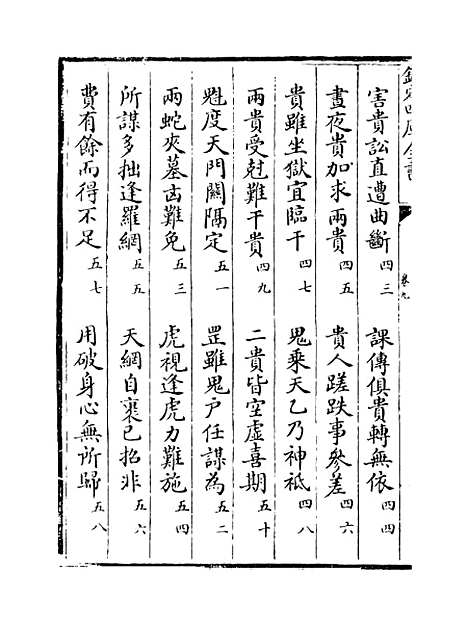 欽定四庫全書
卷九
害貴訟直遭曲斷 四三 課傳俱貴轉無依 四四
晝夜貴加求兩貴 四五 貴人蹉跌事參差 四六
貴雖坐獄宜臨干 四七 鬼乘天乙乃神祇 四八
兩貴受尅難干貴 四九 二貴皆空虛喜期 五十
魁度天門關隔定 五一 罡雖鬼戸任謀為 五二
兩蛇夾墓凶難免 五三 虎視逢虎力難施 五四
所謀多拙逢羅網 五五 天網自裹己招非 五六
費有餘而得不足 五七 用破身心無所歸 五八